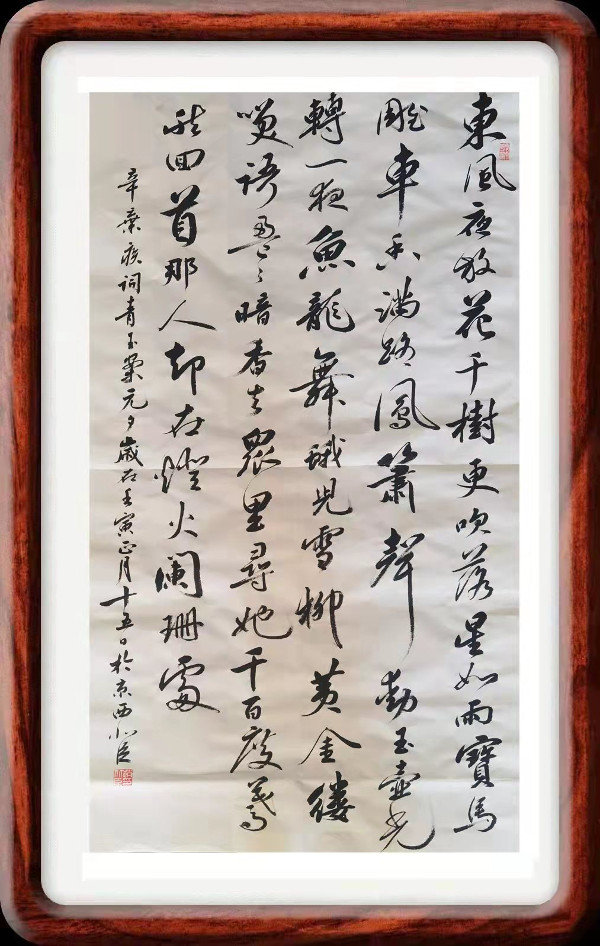 東風夜放花千樹更吹落星如雨寶馬
雕車香滿路鳳簫聲動玉壺光
轉一夜魚龍舞蛾兒雪柳黃金縷
笑語盈々暗香去眾里尋她千百度驀
然回首那人却在燈火闌珊處
辛棄疾詞青玉案元夕歲在壬寅正月十五日於京西小